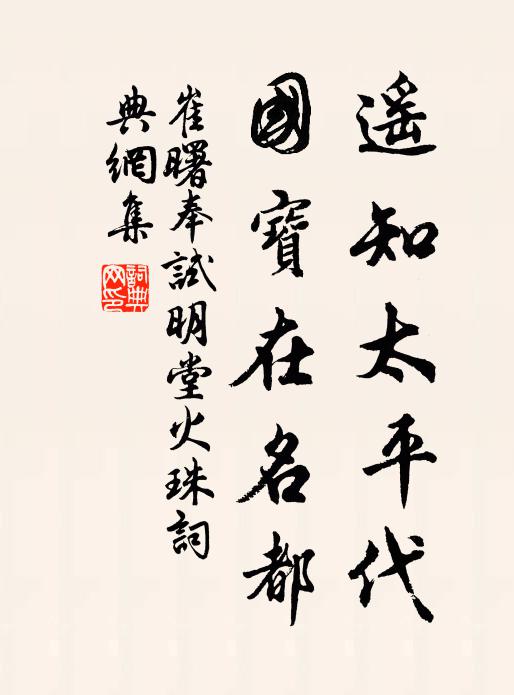 遥知太平代
國寶在名都
崔曙奉試明堂火珠詞
典網集
詞典網印